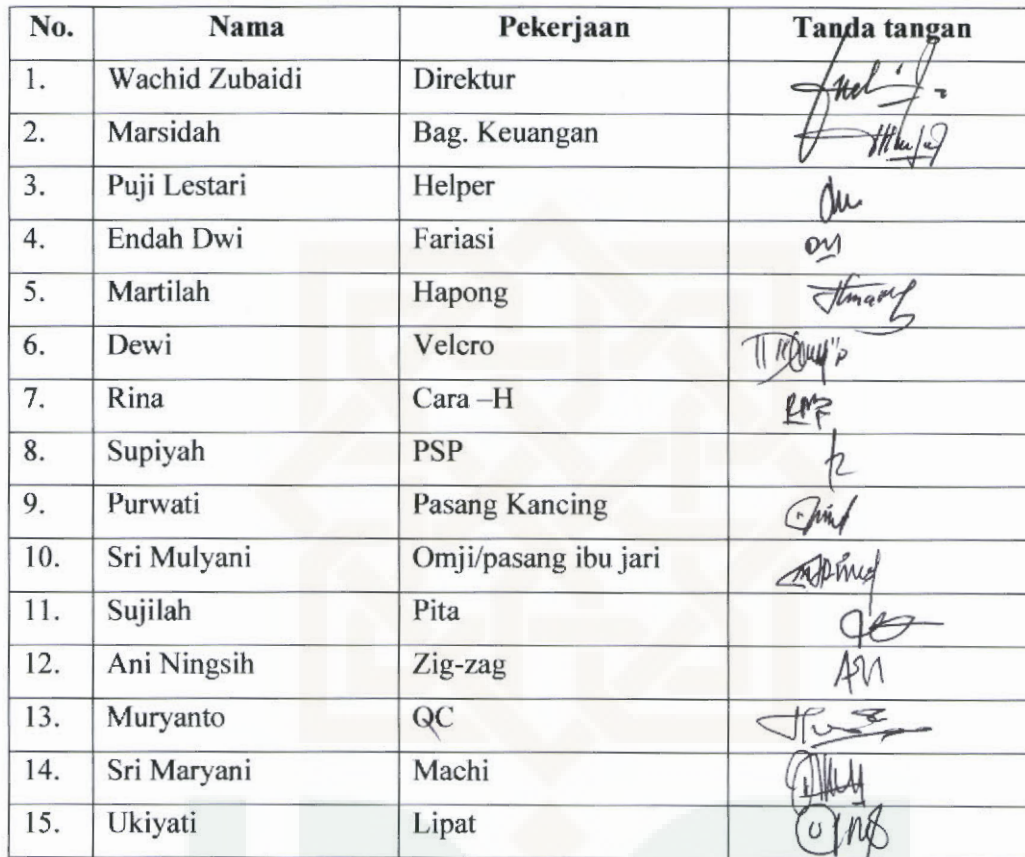 No. Nama Pekerjaan Tanda tangan
1. Wachid Zubaidi Direktur
2. Marsidah Bag. Keuangan
3. Puji Lestari Helper
4. Endah Dwi Fariasi
5. Martilah Hapong
6. Dewi Velcro
7. Rina Cara –H
8. Supiyah PSP
9. Purwati Pasang Kancing
10. Sri Mulyani Omji/pasang ibu jari
11. Sujilah Pita
12. Ani Ningsih Zig-zag
13. Muryanto QC
14. Sri Maryani Machi
15. Ukiyati Lipat